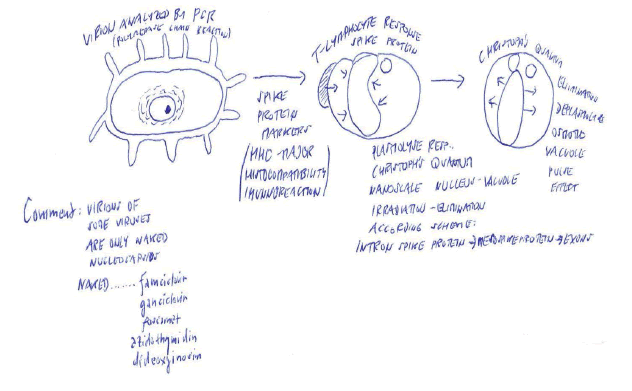 VIRION ANALYZED BY PCR
(POLYMERASE CHAIN REACTION)
SPIKE
PROTEIN
MARKERS
(MHC-MAJOR
HISTOCOMPATIBILITY
IMUNOREACTION)
T-LYMPHOCYTE RESPONSE
SPIKE PROTEIN
CHRISTOPH'S QUANTUM
NANOSCALE NUCLEUS-VACUOLE
IRRADIATION-ELIMINATION
ACCORDING SCHEME:
INTRON SPIKE PROTEIN → PROTEIN → EXONS
CHRISTOPH'S QUANTUM
ELIMINATION
OSMOTIC
VACUOLE
PULSE
EFFECT
Comment: VIRIONS OF
SOME VIRUSES
ARE ONLY NAKED
NUCLEOCAPSIDS
NAKED.......famciclovir
ganciclovir
foscarnet
azidothymidin
dideoxyinosin